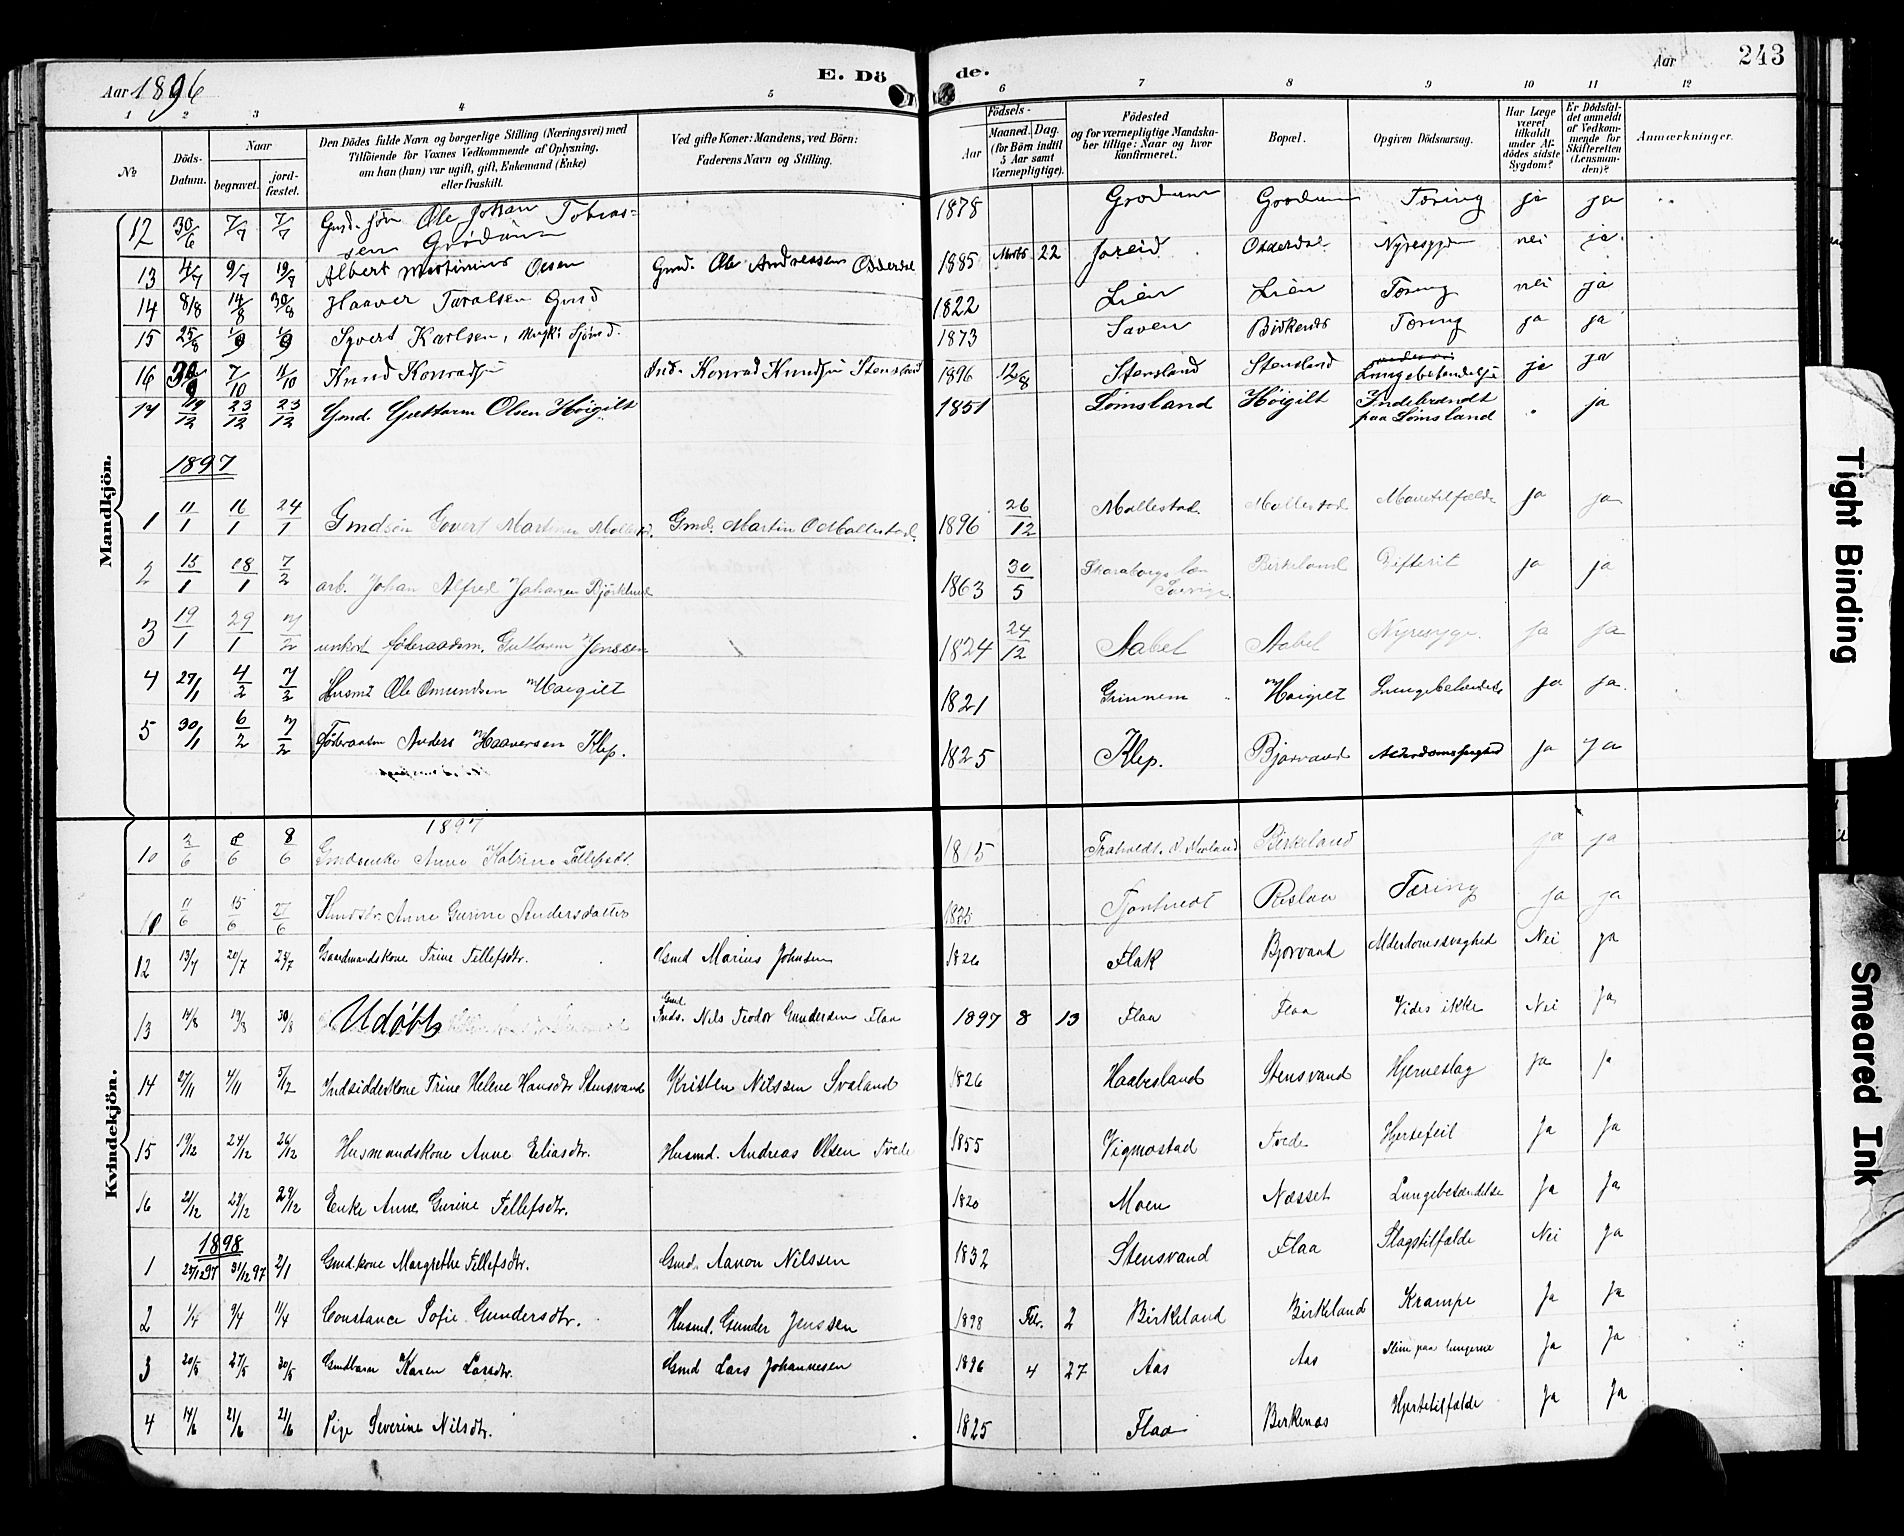 Aar 1896
E. Döde.
Aar 243
1 2 3 4 5 6 7 8 9 10 11 12
No
Döds-Datum.
Naar
begravet.
jordfæstet.
Den Dödes fulde Navn og borgerlige Stilling (Næringsvei) med
Tilföiende for Voxnes Vedkommende af Oplysning,
om han (hun) var ugift, gift, Enkemand (Enke)
eller fraskilt.
Ved gifte Koner: Mandens, ved Börn:
Faderens Navn og Stilling.
Födsels-
Aar
Maaned. Dag.
(for Börn indtil
5 Aar samt
Værnepligtige).
Födested
og for værnepligtige Mandskaber tillige: Naar og hvor
konfirmeret.
Bopæl.
Opgiven Dödsaarsag.
Har Læge
været
tilkaldt
under Afdödes sidste
Sygdom?
Er Dödsfaldet anmeldt
af Vedkommende for
Skifteretten
(Lensmanden)?
Anmærkninger.
Mandkjön.
12 30/6 7/7 7/7 Gmd. søn Ole Johan Tobiassen Grødum 1878 Grødum Grødum Tæring ja ja
13 4/7 9/7 19/7 Albert Martinius Olsen Gmd. Ole Andreassen Odderdal 1885 Marts 22 Foreid Odderdal Nyresygdom nei ja
14 8/8 14/8 30/8 Haaver Taralsen Gmd 1822 Lien Lien Tæring nei ja
15 25/8 1/9 1/9 Syvert Karlsen, ugift Sjømd. 1873 Saven Birkenes Tæring ja ja
16 30/9 7/10 11/10 Knud Konradsen Ind. Konrad Knudsen Stensland 1896 12/8 Stensland Stensland Lungebetændelse ja ja
17 19/12 23/12 23/12 Gmd. Guttorm Olsen Høigilt 1851 Lømsland Høigilt Indebrændt paa Lømsland ja
1897
1 11/1 16/1 24/1 Gmdsøn Govert Martinsen Mollestad Gmd. Martin O Mollestad. 1896 26/12 Mollestad Mollestad Mavetilfælde ja ja
2 15/1 18/1 7/2 arb. Johan Alfred Johansen Björklund 1863 30/5 Skaraborgs län Sverige. Birkeland Giftesit ja ja
3 19/1 29/1 7/2 føderaadsm. Guttorm Jenssen 1824 24/12 Aabel Aabel Nyresyge. ja ja
4 27/1 4/2 7/2 Husmd Ole Omundsen Høigilt 1821 Grinnem Høigilt Lungebetændelse ja ja.
5 30/1 6/2 7/2 Föderaadsm Anders Haaversen Klep. 1825 Klep. Bjorvand Alderdomssvaghed ja ja
Kvindekjön.
1897
10 2/6 8/6 8/6 Gmdenke Anne Katrine Tellefsdt. 1815 Birkeland ja ja
11/6 15/6 27/6 Anne Gurine Andersdatter 1835 Risløa Tæring ja ja
12 13/7 20/7 24/7 Gaardmandskone Trine Tellefsdtr. Gmd Marius Johnsen 1826 Flak Bjorvand Alderdomssvaghed Nei ja
13 14/8 19/8 30/8 Udøbt Gmd. Inds. Nils Teodor Gundersen Flaa 1897 8 13 Flaa Flaa Vides ikke Nei Ja
14 27/11 4/11 5/12 Indsidderkone Trine Helene Hansdtr Stensvand Kristen Nilssen Svaland 1826 Haabesland Stensvand Hjerneslag ja ja
15 19/12 24/12 26/12 Husmandskone Anne Eliasdtr. Husmd. Andreas Olsen Tvede 1855 Vigmostad Tvede Hjertefeil Ja Ja
16 21/12 29/12 29/12 Enke Anne Gurine Tellefsdtr. 1820 Moen Næsset Lungebetændelse Ja Ja
1898
1 25/12 97 31/12 97 2/1 Gmd.kone Margrethe Tellefsdtr. Gmd. Aanon Nilssen 1832 Stensvand Flaa Slagtilfælde Nei Ja
2 1/4 9/4 11/4 Constance Sofie Gundersdtr. Husmd. Gunder Jenssen 1898 Febr. 2 Birkeland Birkeland Krampe Ja Ja
3 20/5 27/5 30/5 Gmdbarn Karen Larsdtr. Gmd Lars Johannesen 1896 4 27 Aas Aas Slim paa lungerne Ja Ja
4 14/6 21/6 21/6 Pige Severine Nilsdtr. 1825 Flaa Birkenæs Hjertetilfælde Ja Ja
Tight Binding
Smeared Ink